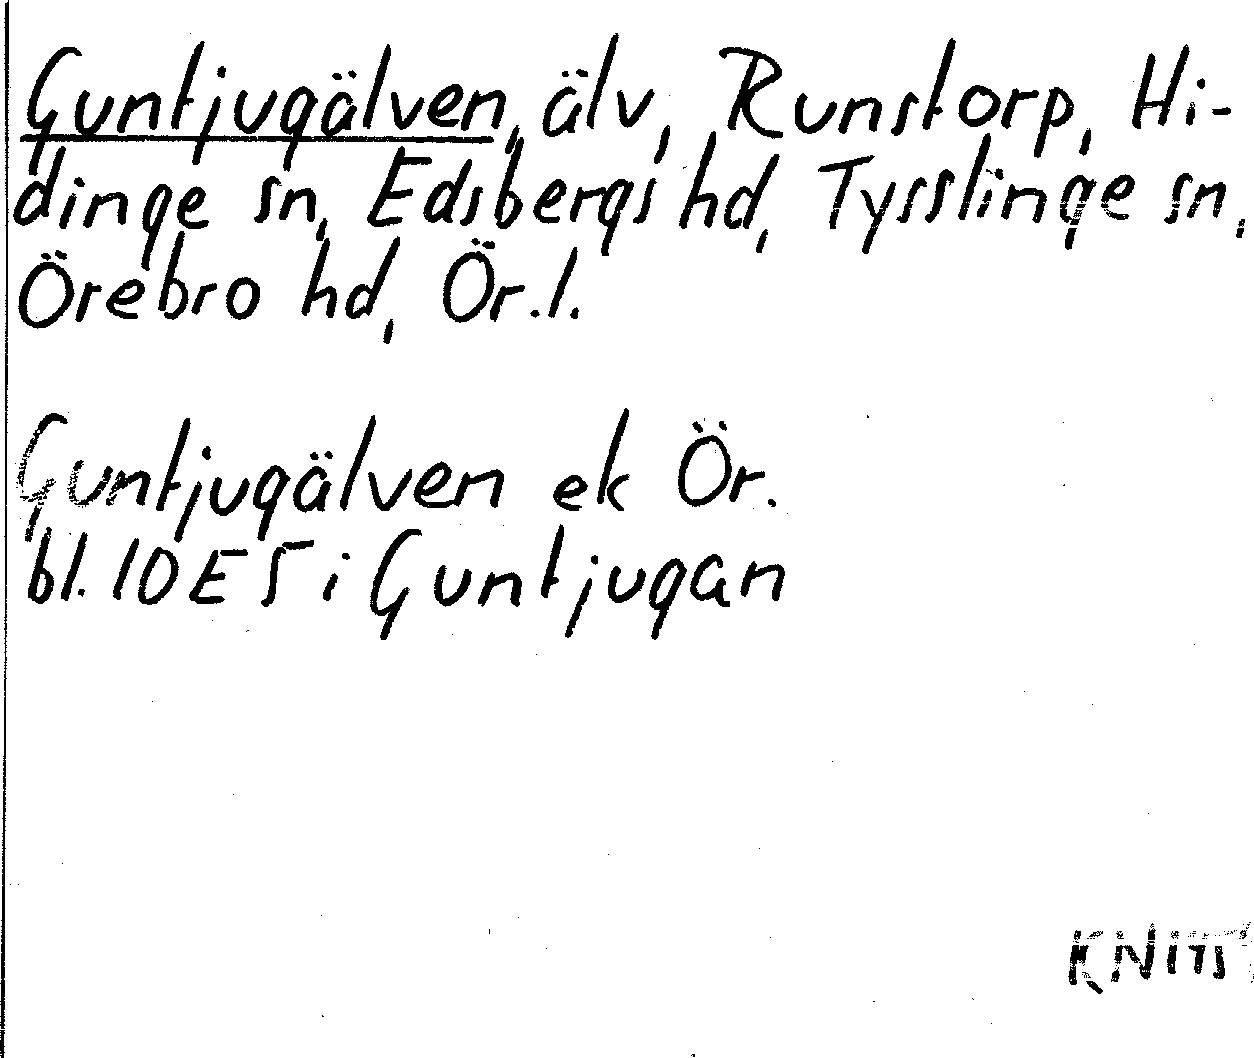 Guntjugälven, älv, Runstorp, Hi-
dinge sn, Edsbergs hd, Tysslinge sn,
Örebro hd, Ör.l.
Guntjugälven ek Ör.
bl. 10E5 i Guntjugan